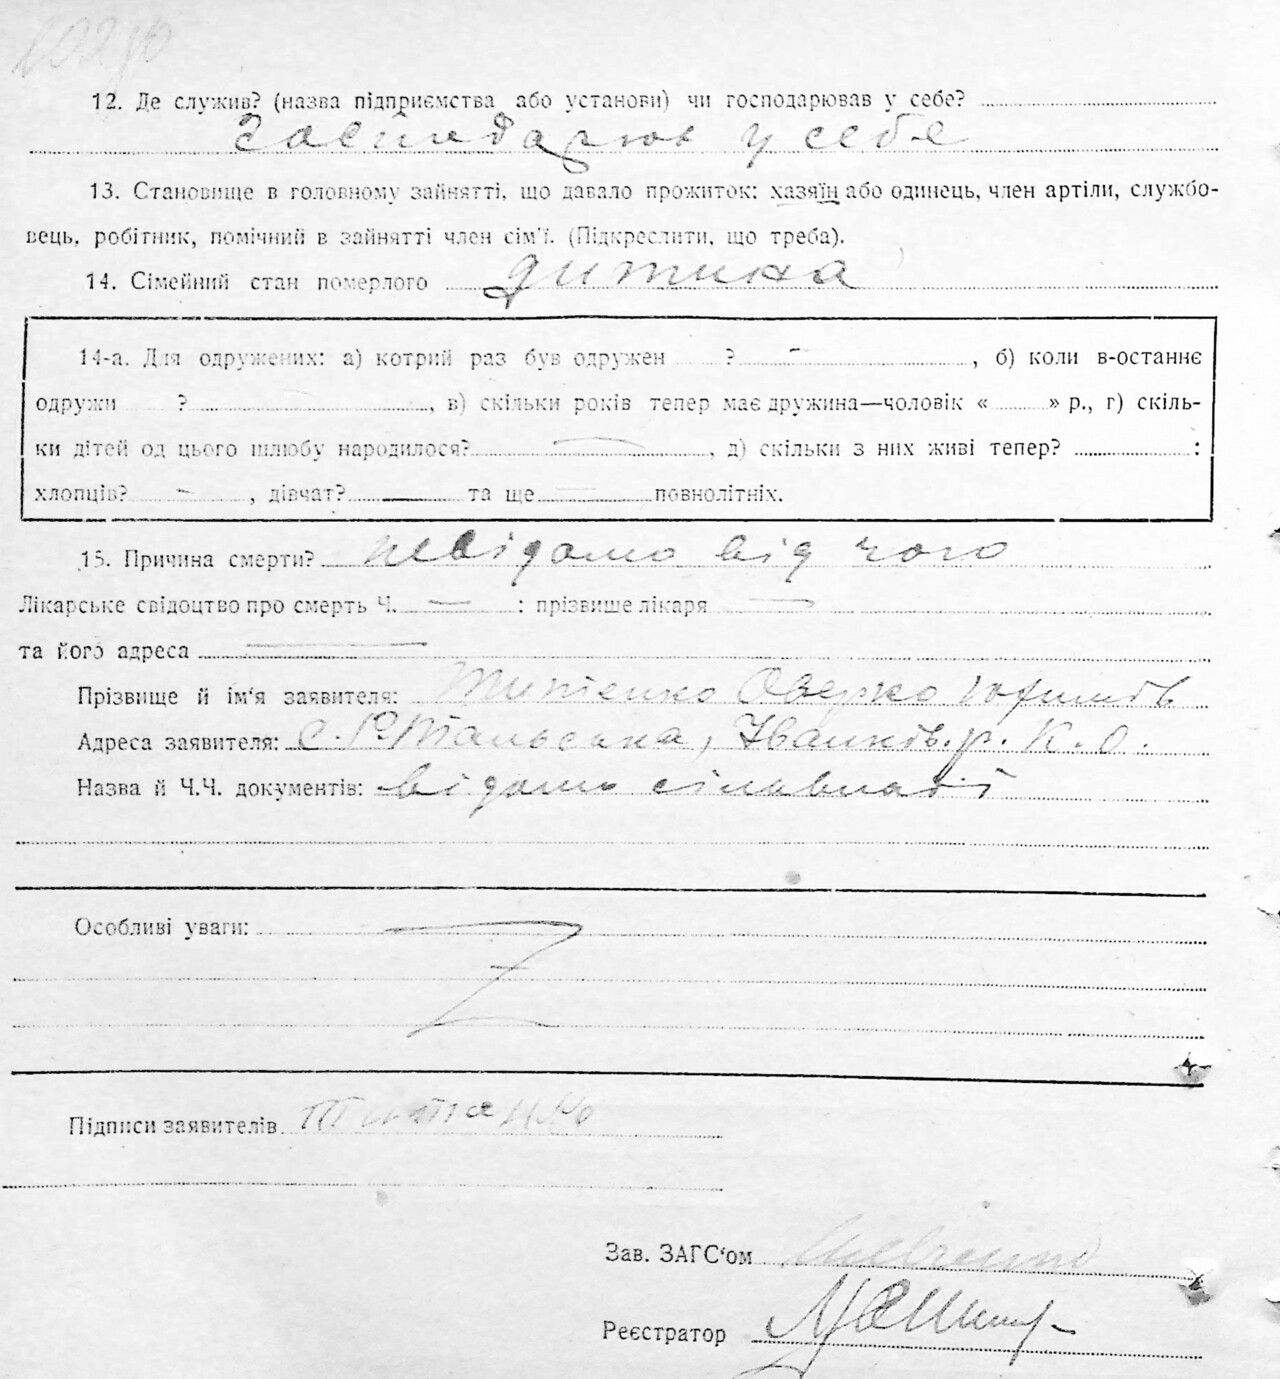 12. Де служив? (назва підприємства або установи) чи господарював у себе?
Господарюв у себе
13. Становище в головному зайнятті, що давало прожиток: хазяїн або одинець, член артіли, службо-
вець, робітник, помічний в зайнятті член сім'ї. (Підкреслити, що треба).
14. Сімейний стан померлого дитина
14-а. Для одружених: а) котрий раз був одружен ? –, б) коли в-останнє
одружи ?, в) скільки років тепер має дружина—чоловік « » р., г) скіль-
ки дітей од цього шлюбу народилося? —, д) скільки з них живі тепер? :
хлопців? –, дівчат? — та ще — повнолітніх.
15. Причина смерти? невідомо від чого
Лікарське свідоцтво про смерть Ч. — : прізвище лікаря —
та його адреса —
Прізвище й ім'я заявителя: Титенко Оверко
Адреса заявителя: с. Іванків. р. К. О.
Назва й Ч.Ч. документів: відомо сільвладі
Особливі уваги:
Підписи заявителів Титенко
Зав. ЗАГС'ом Шевченко
Реєстратор